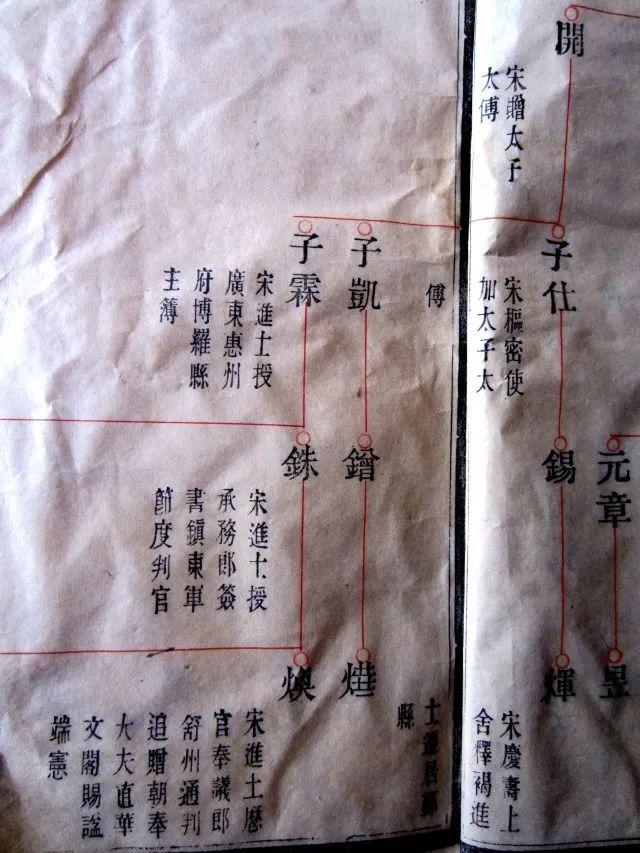 開
宋贈太子
太傅
子仕
宋樞密使
加太子太
傅
子凱
子霖
宋進士授
廣東惠州
府博羅縣
主簿
元章
錫
鐠
銖
宋進士授
承務郎簽
書鎮東軍
節度判官
昱
煇
宋慶壽上
舍釋褐進
縣
煥
宋進士歷
官奉議郎
舒州通判
追贈朝奉
大夫直華
文閣賜諡
端憲